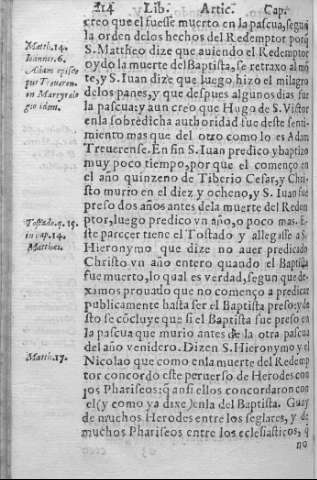 214 Lib. Artic. Cap.
creo que el fuesse muerto en la pascua, segun
la orden delos hechos del Redemptor porq̃
S. Mattheo dize que auiendo el Redemptor
oydo la muerte del Baptista, se retraxo al mõ
te, y S. Iuan dize que luego hizo el milagro
delos panes, y que despues algunos dias fue
la pascua: y aun creo que Hugo de S. Victor
enla sobredicha authoridad fue deste sentimiento
mas que del otro como lo es Adam
Treuerense. En fin S. Iuan predico y baptizo
muy poco tiempo, porque el començo en
el año quinzeno de Tiberio Cesar, y Christo
murio en el diez y ocheno, y S. Iuan fue
preso dos años antes dela muerte del Redemptor,
luego predico vn año, o poco mas. Este
parecer tiene el Tostado y allegasse a S.
Hieronymo que dize no auer predicado
Christo vn año entero quando el Baptista
fue muerto, lo qual es verdad, segun que dexamos
prouado que no começo a predicar
publicamente hasta ser el Baptista preso: y desto
se cõcluye que si el Baptista fue preso en
la pascua que murio antes de la otra pascua
del año venidero. Dizen S. Hieronymo y el
Nicolao que como enla muerte del Redemptor
concordó este peruerso de Herodes con
los Phariseos: q̃ ansi ellos concordaron con
el (y como ya dixe) enla del Baptista. Guay
de muchos Herodes entre los seglares, y de
muchos Phariseos entre los eclesiasticos, q̃
no
Matth. 14.
Ioannis. 6.
Adam episco
pus Treueren.
in Martyrolo
gio idem.
Tostado. q. 15.
in cap. 14.
Matthei.
Matth. 17.